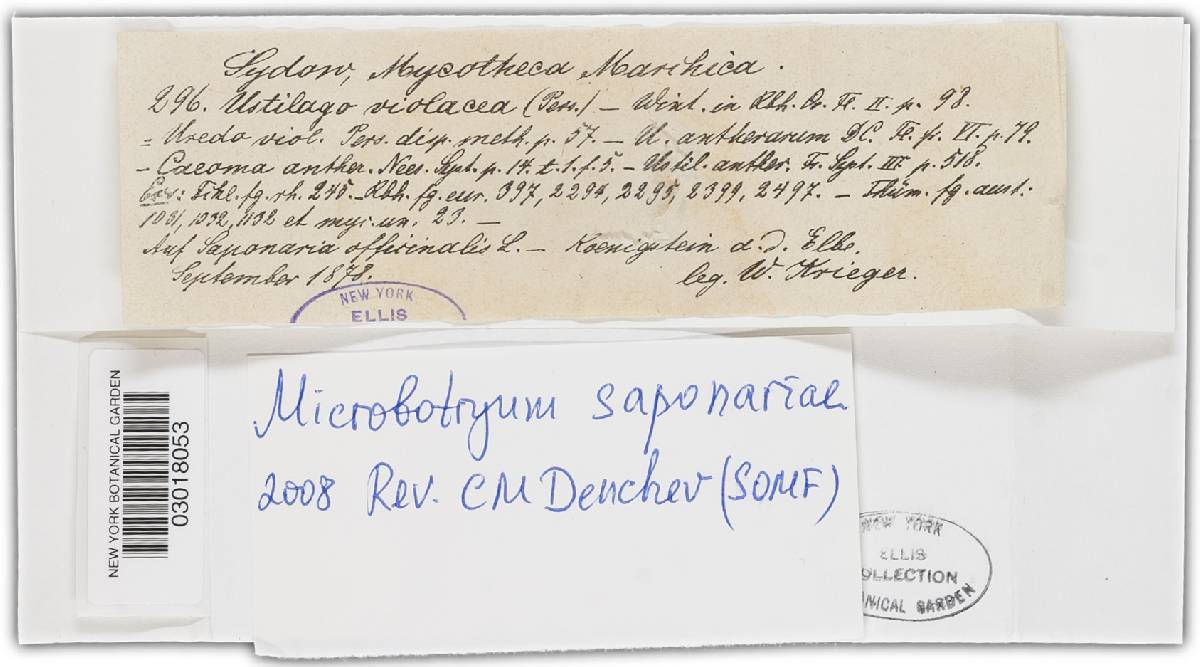 Sydow, Mycotheca Marchica.
296. Ustilago violacea (Pers.) — Wint. in Rbh. Cr. Fl. II. p. 98.
= Uredo viol. Pers. disp. meth. p. 57. — U. antherarum DC. Fl. fr. VI. p. 79.
— Caeoma anther. Nees. Syst. p. 14. t. 1. f. 5. — Ustil. anther. Fr. Syst. III p. 518.
Exs: Fckl. fg. rh. 245. — Rbh. fg. eur. 397, 2294, 2295, 2399, 2497. — Thüm. fg. aust.
1031, 1032, 1132 et myc. un. 23. —
Auf Saponaria officinalis L. — Koenigstein a. d. Elbe.
September 1878. leg. W. Krieger.
NEW YORK
ELLIS
NEW YORK BOTANICAL GARDEN
03018053
Microbotryum saponariae
2008 Rev. CM Denchev (SOMF)
NEW YORK
ELLIS
OLLECTION
ANICAL GARDEN